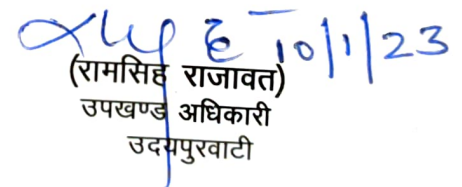 10/1/23
(रामसिंह राजावत)
उपखण्ड अधिकारी
उदयपुरवाटी